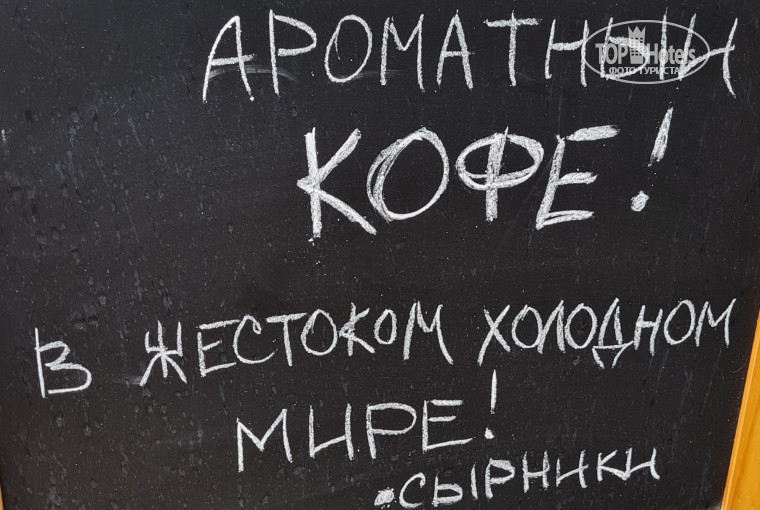 АРОМАТНЫЙ
TOP Hotels
ФОТО ТУРИСТА
КОФЕ!
В ЖЕСТОКОМ ХОЛОДНОМ
МИРЕ!
•СЫРНИКИ